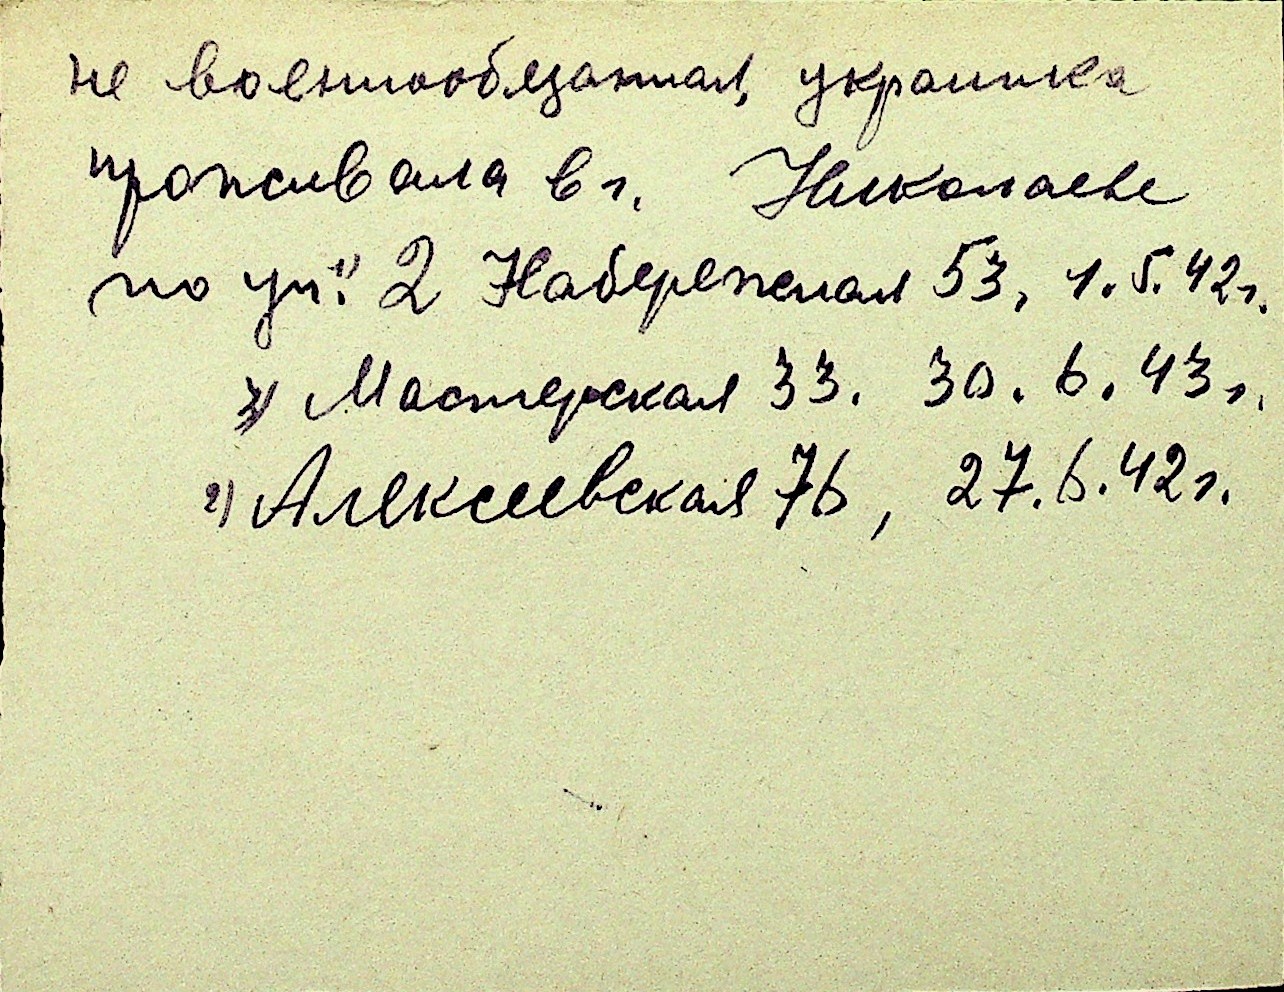 не военнообязанная, украинка
проживала в г. Николаеве
по ул. 1) 2 Набережная 53, 1.5.42г.
3) Мастерская 33. 30.6.43г.
2) Алексеевская 76, 27.6.42г.